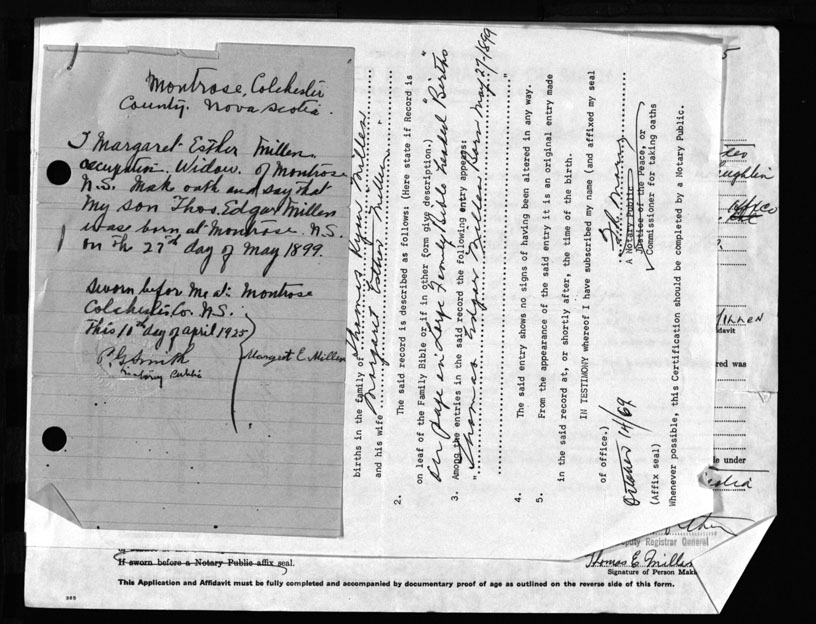 Montrose, Colchester
County. Nova Scotia.
I Margaret Esther Millen
occupation Widow of Montrose
N.S. make oath and say that
My son Thos. Edgar Millen
was born at Montrose N.S.
on the 27th day of May 1899.
Sworn before Me at Montrose
Colchester Co. N.S.
This 10th day of april 1925
P. G. Smith
Notary Public
Margaret E. Millen
births in the family of Thomas Ryan Millen
and his wife Margaret Esther Millen
2. The said record is described as follows: (Here state if Record is
on leaf of the Family Bible or if in other form give description.)
on page in large Family Bible headed "Births"
3. Among the entries in the said record the following entry appears:
"Thomas Edgar Millen Born May 27-1899
"
4. The said entry shows no signs of having been altered in any way.
5. From the appearance of the said entry it is an original entry made
in the said record at, or shortly after, the time of the birth.
IN TESTIMONY whereof I have subscribed my name (and affixed my seal
of office.)
October 14/69
A Notary Public
Justice of the Peace, or
Commissioner for taking oaths
(Affix seal)
Whenever possible, this Certification should be completed by a Notary Public.
5
aughlin
Millen
davit
red was
e under
puty Registrar General
If sworn before a Notary Public affix seal.
Thomas E. Millen
Signature of Person Maki
This Application and Affidavit must be fully completed and accompanied by documentary proof of age as outlined on the reverse side of this form.